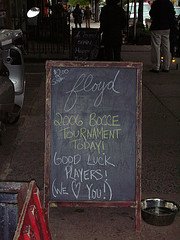 floyd
2006 BOCCE
TOURNAMENT
TODAY!
GOOD LUCK
PLAYERS!
(WE ♡ YOU!)